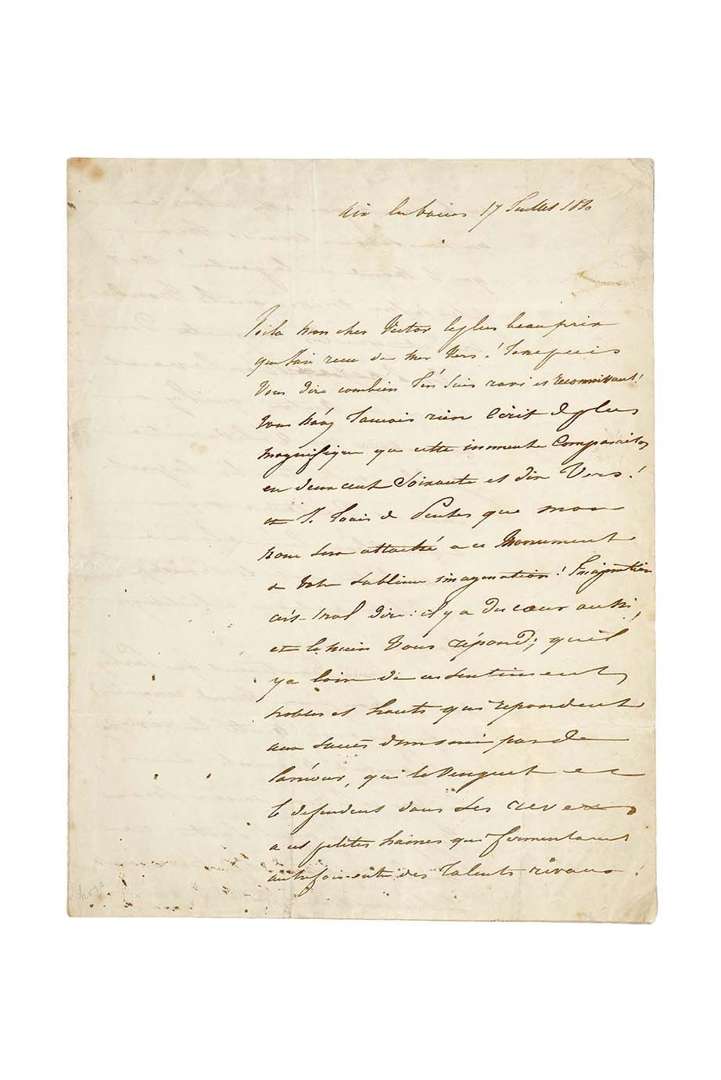 Aix les bains 17 Juillet 1830
Voilà mon cher Victor le plus beau prix
que j'aie recu de mes Vers! Je ne puis
Vous dire combien j'en suis ravi et reconnaissant!
Vous n'avez jamais rien écrit de plus
magnifique que cette immense Comparaison
en deux cent soixante et dix Vers!
et je jouis de penser que mon
nom sera attaché a ce Monument
de votre sublime imagination! Imagination
c'est mal dire: il y a du cœur aussi,
et le mien Vous répond; qu'il
y a loin de ces sentiments
nobles et hauts qui repondent
aux succès d'un ami par de
l'amour, qui le Vengent et
le defendent dans ses revers
a ces petites haines qui fermentaient
autrefois entre des talents rivaux!